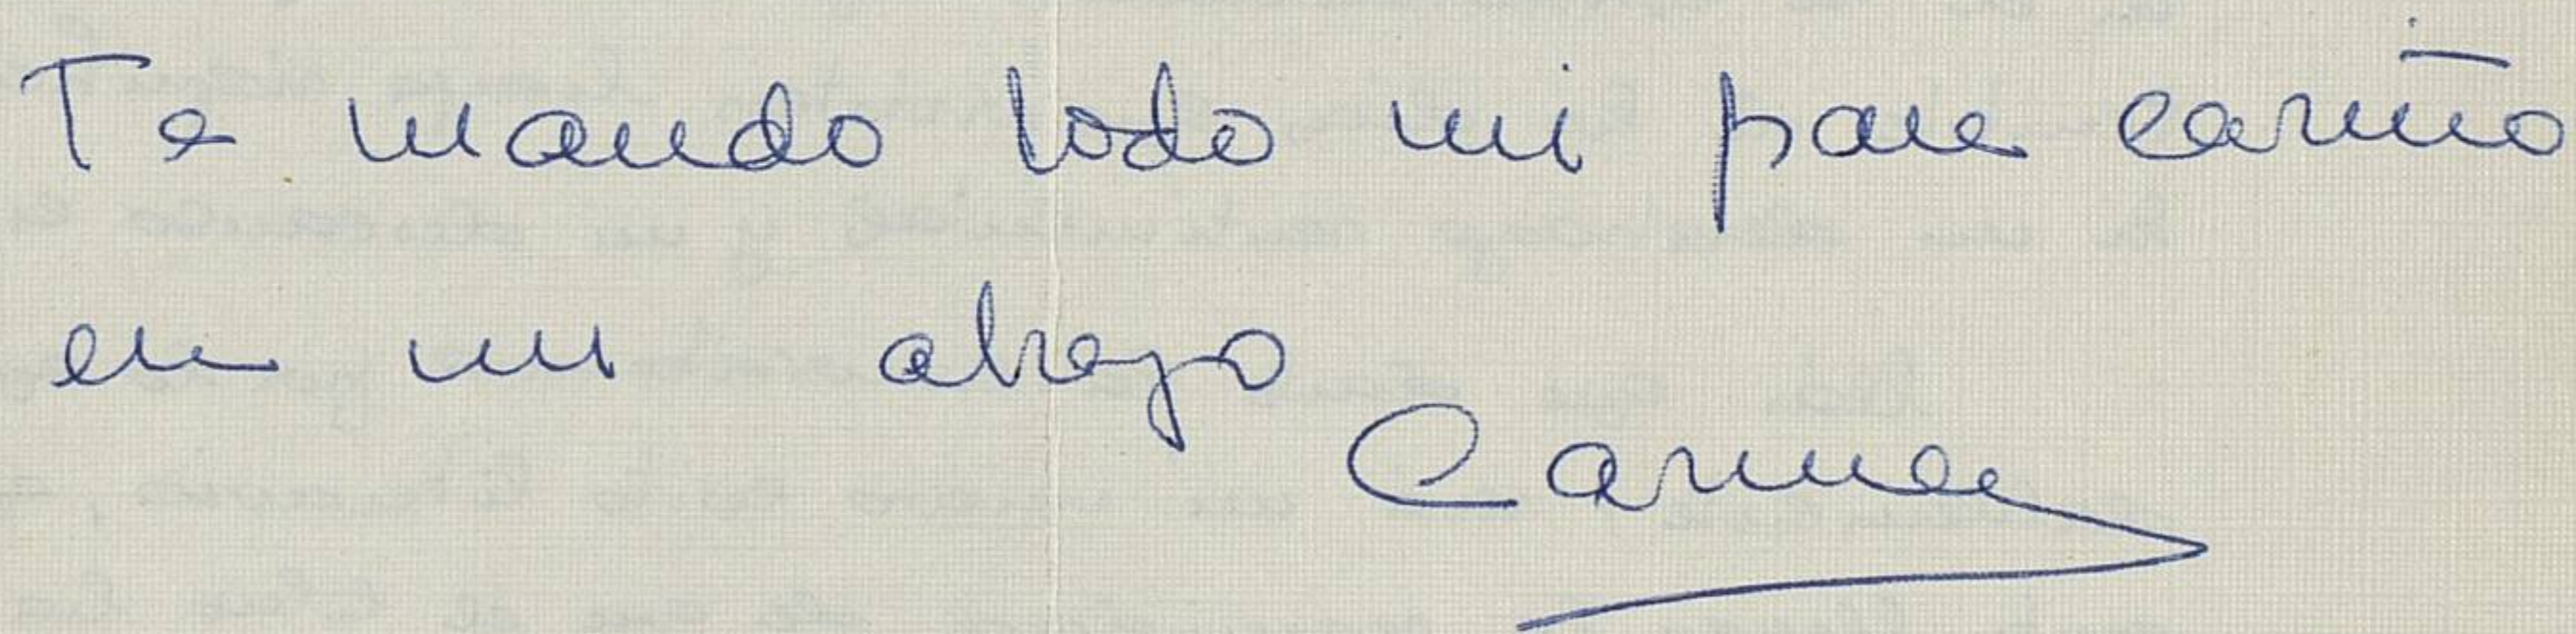 Te mando todo mi cariño
en un abrazo
Carmen